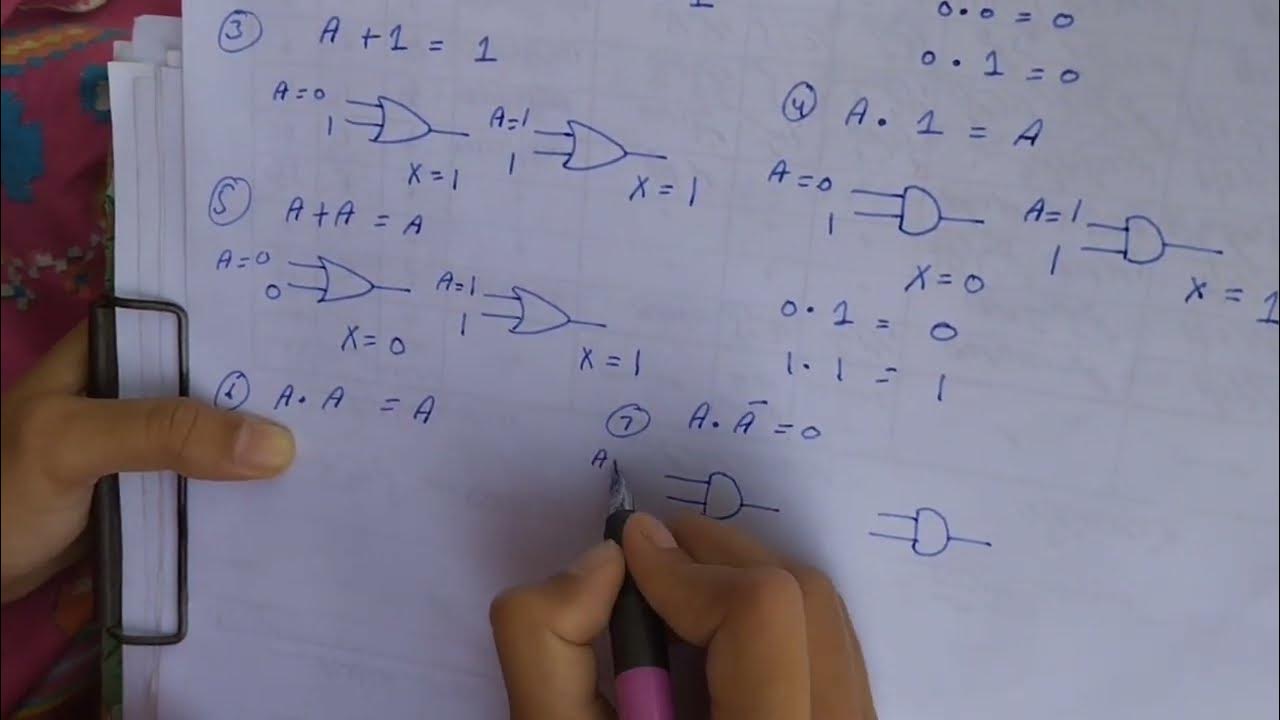 0.0 = 0
0.1 = 0
③ A + 1 = 1
A=0
1
X=1
A=1
1
X = 1
④ A . 1 = A
A=0
1
X=0
A=1
1
X = 1
0.1 = 0
1.1 = 1
⑤ A+A = A
A=0
0
X=0
A=1
1
X=1
⑥ A.A = A
⑦ A.Ā=0
A